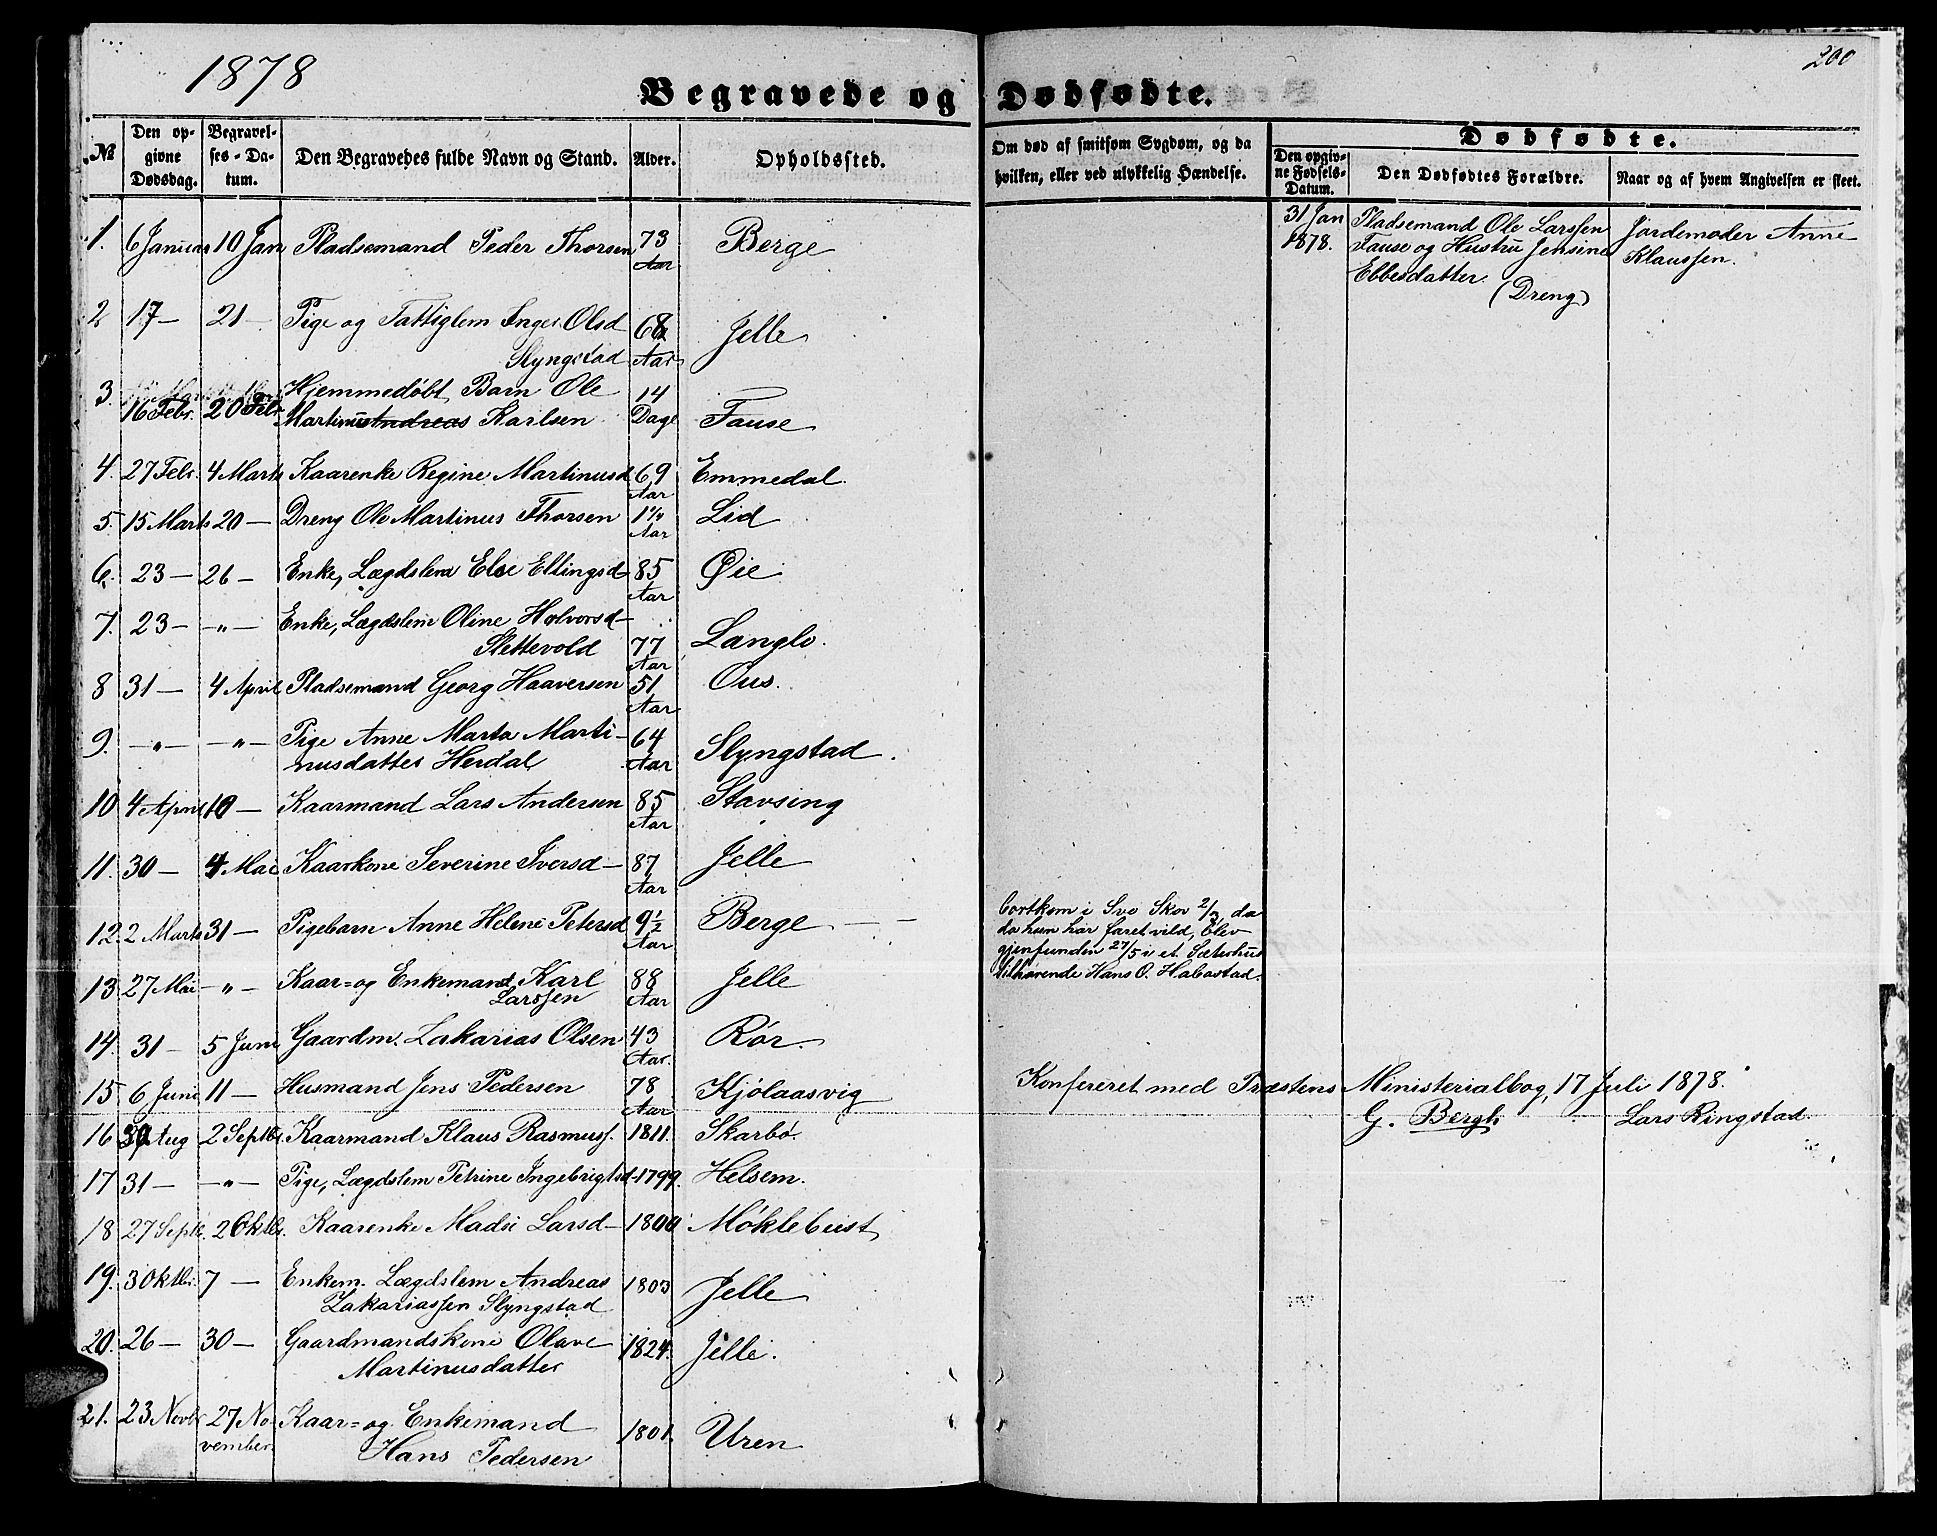 1878
200
Begravede og Dødfødte.
№
Den opgivne Dødsdag.
Begravelses-Datum.
Den Begravedes fulde Navn og Stand.
Alder.
Opholdssted.
Om død af smitsom Sygdom, og da hvilken, eller ved ulykkelig Hændelse.
Dødfødte.
Den opgivne Fødsels-Datum.
Den Dødfødtes Forældre.
Naar og af hvem Angivelsen er skeet.
1. 6 Januar 10 Jan Pladsemand Peder Thorsen 73 Aar Berge
2 17 — 21 — Pige og Fattiglem Inger Olsd Slyngstad 68 Aar Jelle
3. 16 Febr. 20 Febr. Hjemmedøbt Barn Ole
Martinus Andreas Karlsen 14 Dage Fause
4. 27 Febr. 4 Marts Kaarenke Regine Martinusd 69 Aar Emmedal.
5. 15 Marts 20 — Dreng Ole Martinus Thorsen 1 1/4 Aar Lid
6. 23 — 26 — Enke, Lægdslem Else Ellingsd 85 Aar Øie
7. 23 — — " — Enke, Lægdslem Oline Halvorsd
Slettevold 77 Aar Langlo.
8 31 — 4 April Pladsemand Georg Haaversen 51 Aar Ous.
9. — " — — " — Pige Anne Marta Marti-
nusdatter Herdal 64 Aar Slyngstad.
10 4 April 10 — Kaarmand Lars Andersen 85 Aar Stavsing
11. 30 — 4 Mai Kaarkone Severine Iversd — 87 Aar Jelle
12. 2 Marts 31 — Pigebarn Anne Helene Petersd 9 1/2 Aar Berge
13 27 Mai — " — Kaar= og Enkemand Karl
Larssen 88 Aar Jelle
14. 31 — 5 Juni Gaardm. Zakarias Olsen 43 Aar. Rør.
15 6 Juni 11 — Husmand Jens Pedersen 78 Aar Kjølaasvig
16 30 Aug 2 Septbr. Kaarmand Klaus Rasmuss. 1811. Skarbø.
17 31 — — " — Pige, Lægdslem Petrine Ingebrigtsd 1799. Helsem.
18 27 Septb. 2 Oktbr. Kaarenke Madsi Larsd — 1800 Møklebust
19. 3 Oktbr. 7 — Enkem. Lægdslem Andreas
Zakariassen Slyngstad 1803 Jelle
20. 26 — 30 — Gaardmandskone Olave
Martinusdatter 1824. Jelle.
21. 23 Novbr 27 No-
vember. Kaar= og Enkemand
Hans Pedersen 1801. Uren
31 Jan
1878.
Pladsemand Ole Larssen
Fause og Hustru Jensine
Ebbesdatter.
(Dreng)
Jordemoder Anne
Klaussen.
bortkom i Skov 2/3, da
da hun har faret vild, blev
gjenfunden 27/5 i et Sæterhus
tilhørende Hans O.
Konfereret med Præstens Ministerialbog, 17 Juli 1878.
G. Bergh Lars Ringstad.